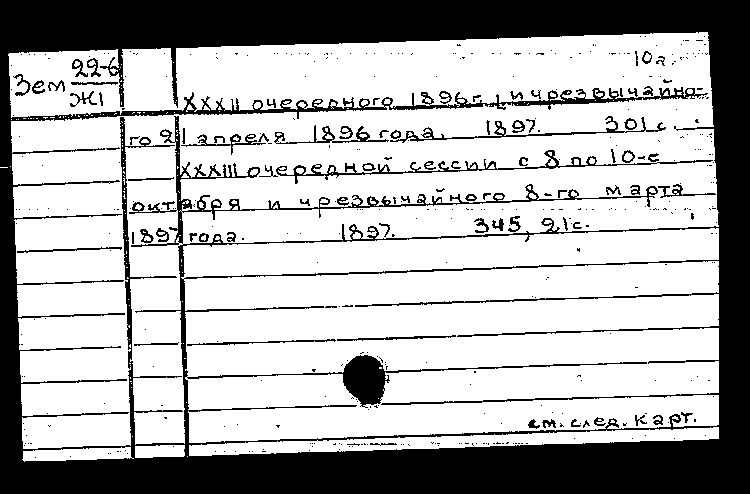 10а.
Зем 22-6
Ж1
XXXII очередного 1896 г. и чрезвычайно-
го 21 апреля 1896 года. 1897. 301 с.
XXXIII очередной сессии с 8 по 10-е
октября и чрезвычайного 8-го марта
1897 года. 1897. 345, 21с.
см. след. карт.